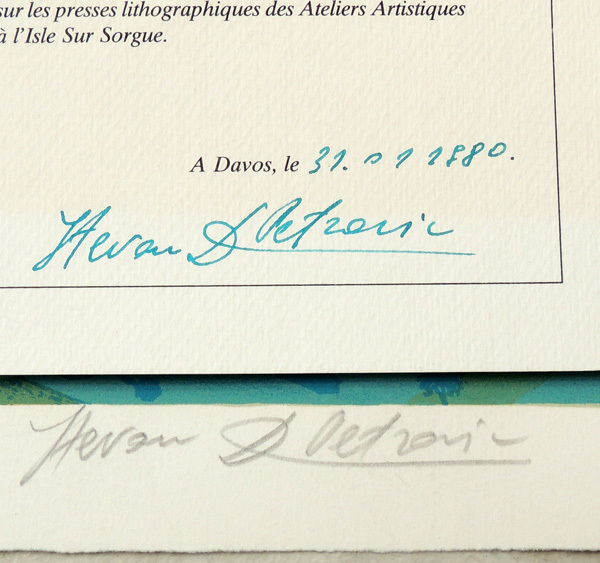 sur les presses lithographiques des Ateliers Artistiques
à l'Isle Sur Sorgue.
A Davos, le 31. 01 1980.
Stevan D Petrovic
Stevan D Petrovic